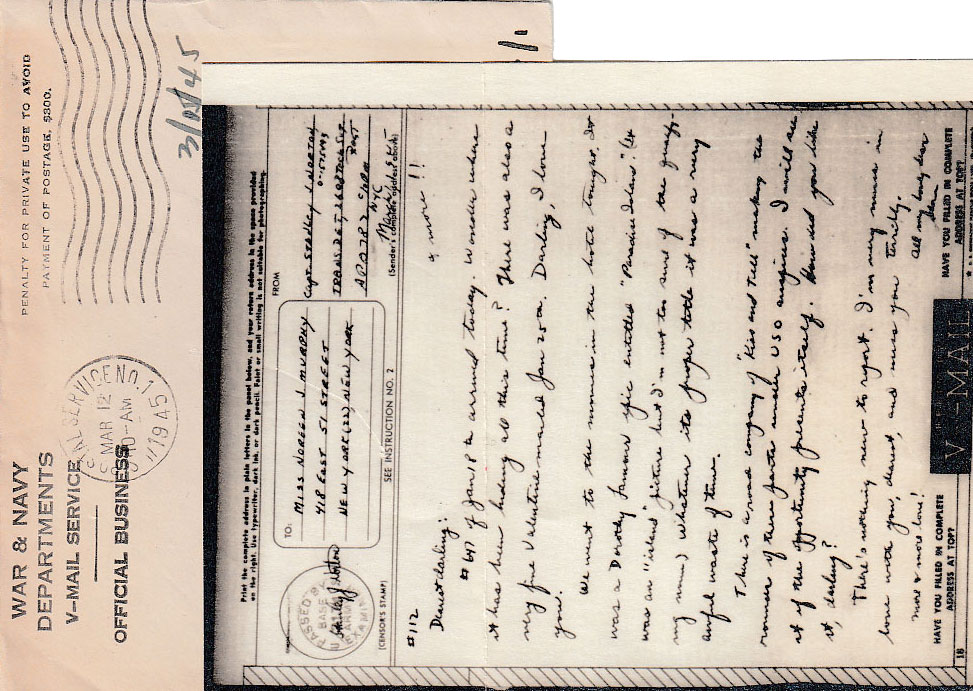 WAR & NAVY
DEPARTMENTS
V-MAIL SERVICE
OFFICIAL BUSINESS
PENALTY FOR PRIVATE USE TO AVOID
PAYMENT OF POSTAGE, $300.
SERVICE NO. 1
MAR 12
-AM
1945
3/ /45
Print the complete address in plain letters in the panel below, and your return address in the space provided
on the right. Use typewriter, dark ink, or dark pencil. Faint or small writing is not suitable for photographing.
TO:
MISS NOREEN J. MURPHY
418 EAST 51 STREET
NEW YORK (22) NEW YORK
FROM
Capt. STANLEY J. NORTON
APO 782 C/O PM
NYC
(Sender's complete address above)
PASSED BY
BASE
EXAMINER
(CENSOR'S STAMP)
SEE INSTRUCTION NO. 2
#112
& more!!
Dearest darling:
#647 of Jan 18th arrived today. Wonder where
it has been hiding all this time? There was also a
very fine Valentine mailed Jan 20th. Darling, I love
you.
We went to the movies in the hotel tonight. It
was a Dorothy Lamour epic entitled "Paradise Island". (It
was an "island" picture but I'm not too sure of the
my mind) Whatever its proper title it was a very
awful waste of time.
There is a road company of "Kiss and Tell" making the
rounds of these parts under USO auspices. I will see
it if the opportunity presents itself. How did you like
it, darling?
There's nothing new to report. I'm very much in
love with you, dearest, and miss you terribly.
All my love, dear
more & more love!
Stan
HAVE YOU FILLED IN COMPLETE
ADDRESS AT TOP?
V-MAIL
HAVE YOU FILLED IN COMPLETE
ADDRESS AT TOP?